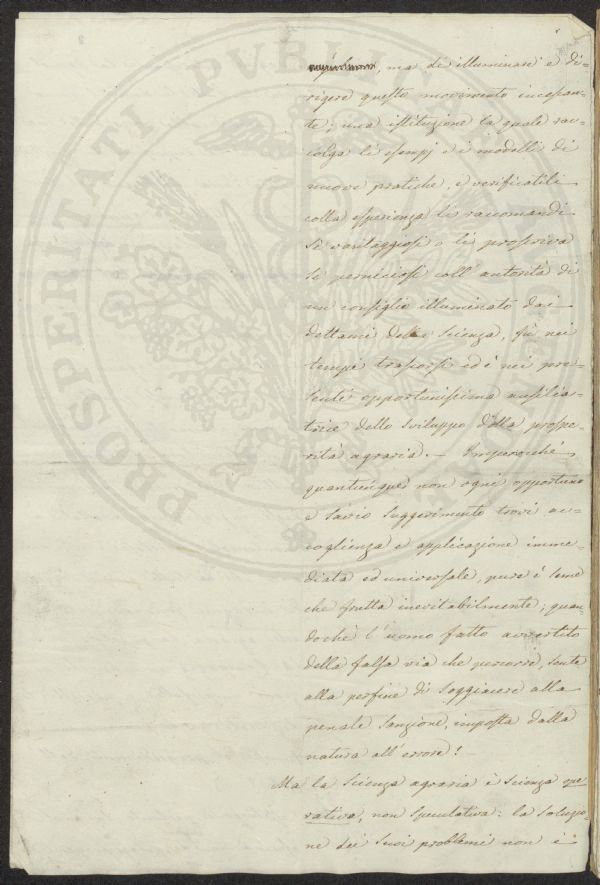 , ma di illuminare e di=
rigere questo movimento incessan=
te; una istituzione la quale rac=
colga li esempj e i modelli di
nuove pratiche, e verificatili
colla esperienza li raccomandi
se vantaggiosi o li proscriva
se perniciosi coll' autorità di
un consiglio illuminato dai
dettami della Scienza, fù nei
tempi trascorsi ed è nei pre=
senti opportunissima ausilia=
trice dello sviluppo della prospe=
rità agraria. — Imperocchè
quantunque non ogni opportuno
e savio suggerimento trovi ac=
coglienza e applicazione imme=
diata ed universale, pure è seme
che frutta inevitabilmente; quan=
dochè l' uomo fatto avvertito
della falsa via che percorre, sente
alla perfine di soggiacere alla
penale sanzione, imposta dalla
natura all' errore! —
Ma la scienza agraria è scienza ope
rativa, non speculativa: la soluzio=
ne dei suoi problemi non è
PROSPERITATI PVBLICAE